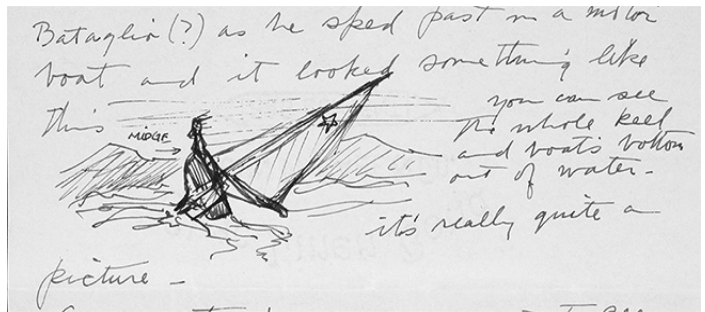 Bataglia(?) as he sped past in a motor
boat and it looked something like
this
MIDGE
you can see
the whole keel
and boat's bottom
out of water -
it's really quite a
picture -